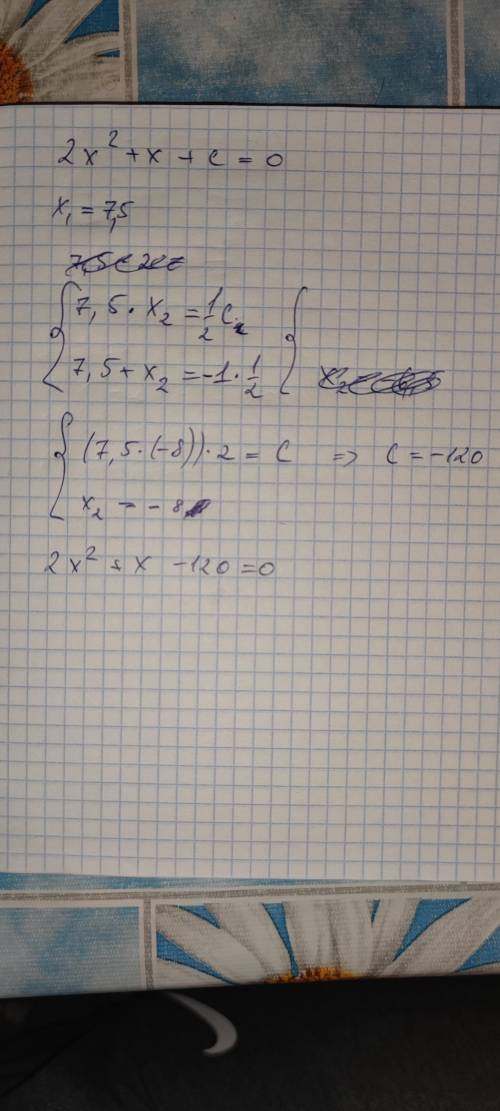 2x² + x + c = 0
x₁ = 7,5
{ 7,5 · x₂ = 1/2 c {
7,5 + x₂ = -1 · 1/2
{ (7,5 · (-8)) · 2 = c => c = -120
x₂ = -8
2x² + x - 120 = 0